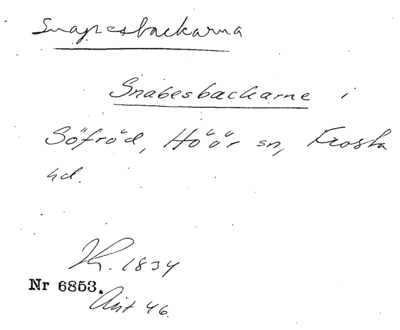 Snapesbackarna
Snabesbackarne i
Söfröd, Höör sn, Frosta
hd.
K. 1834
Nr 6853.
Avt 46